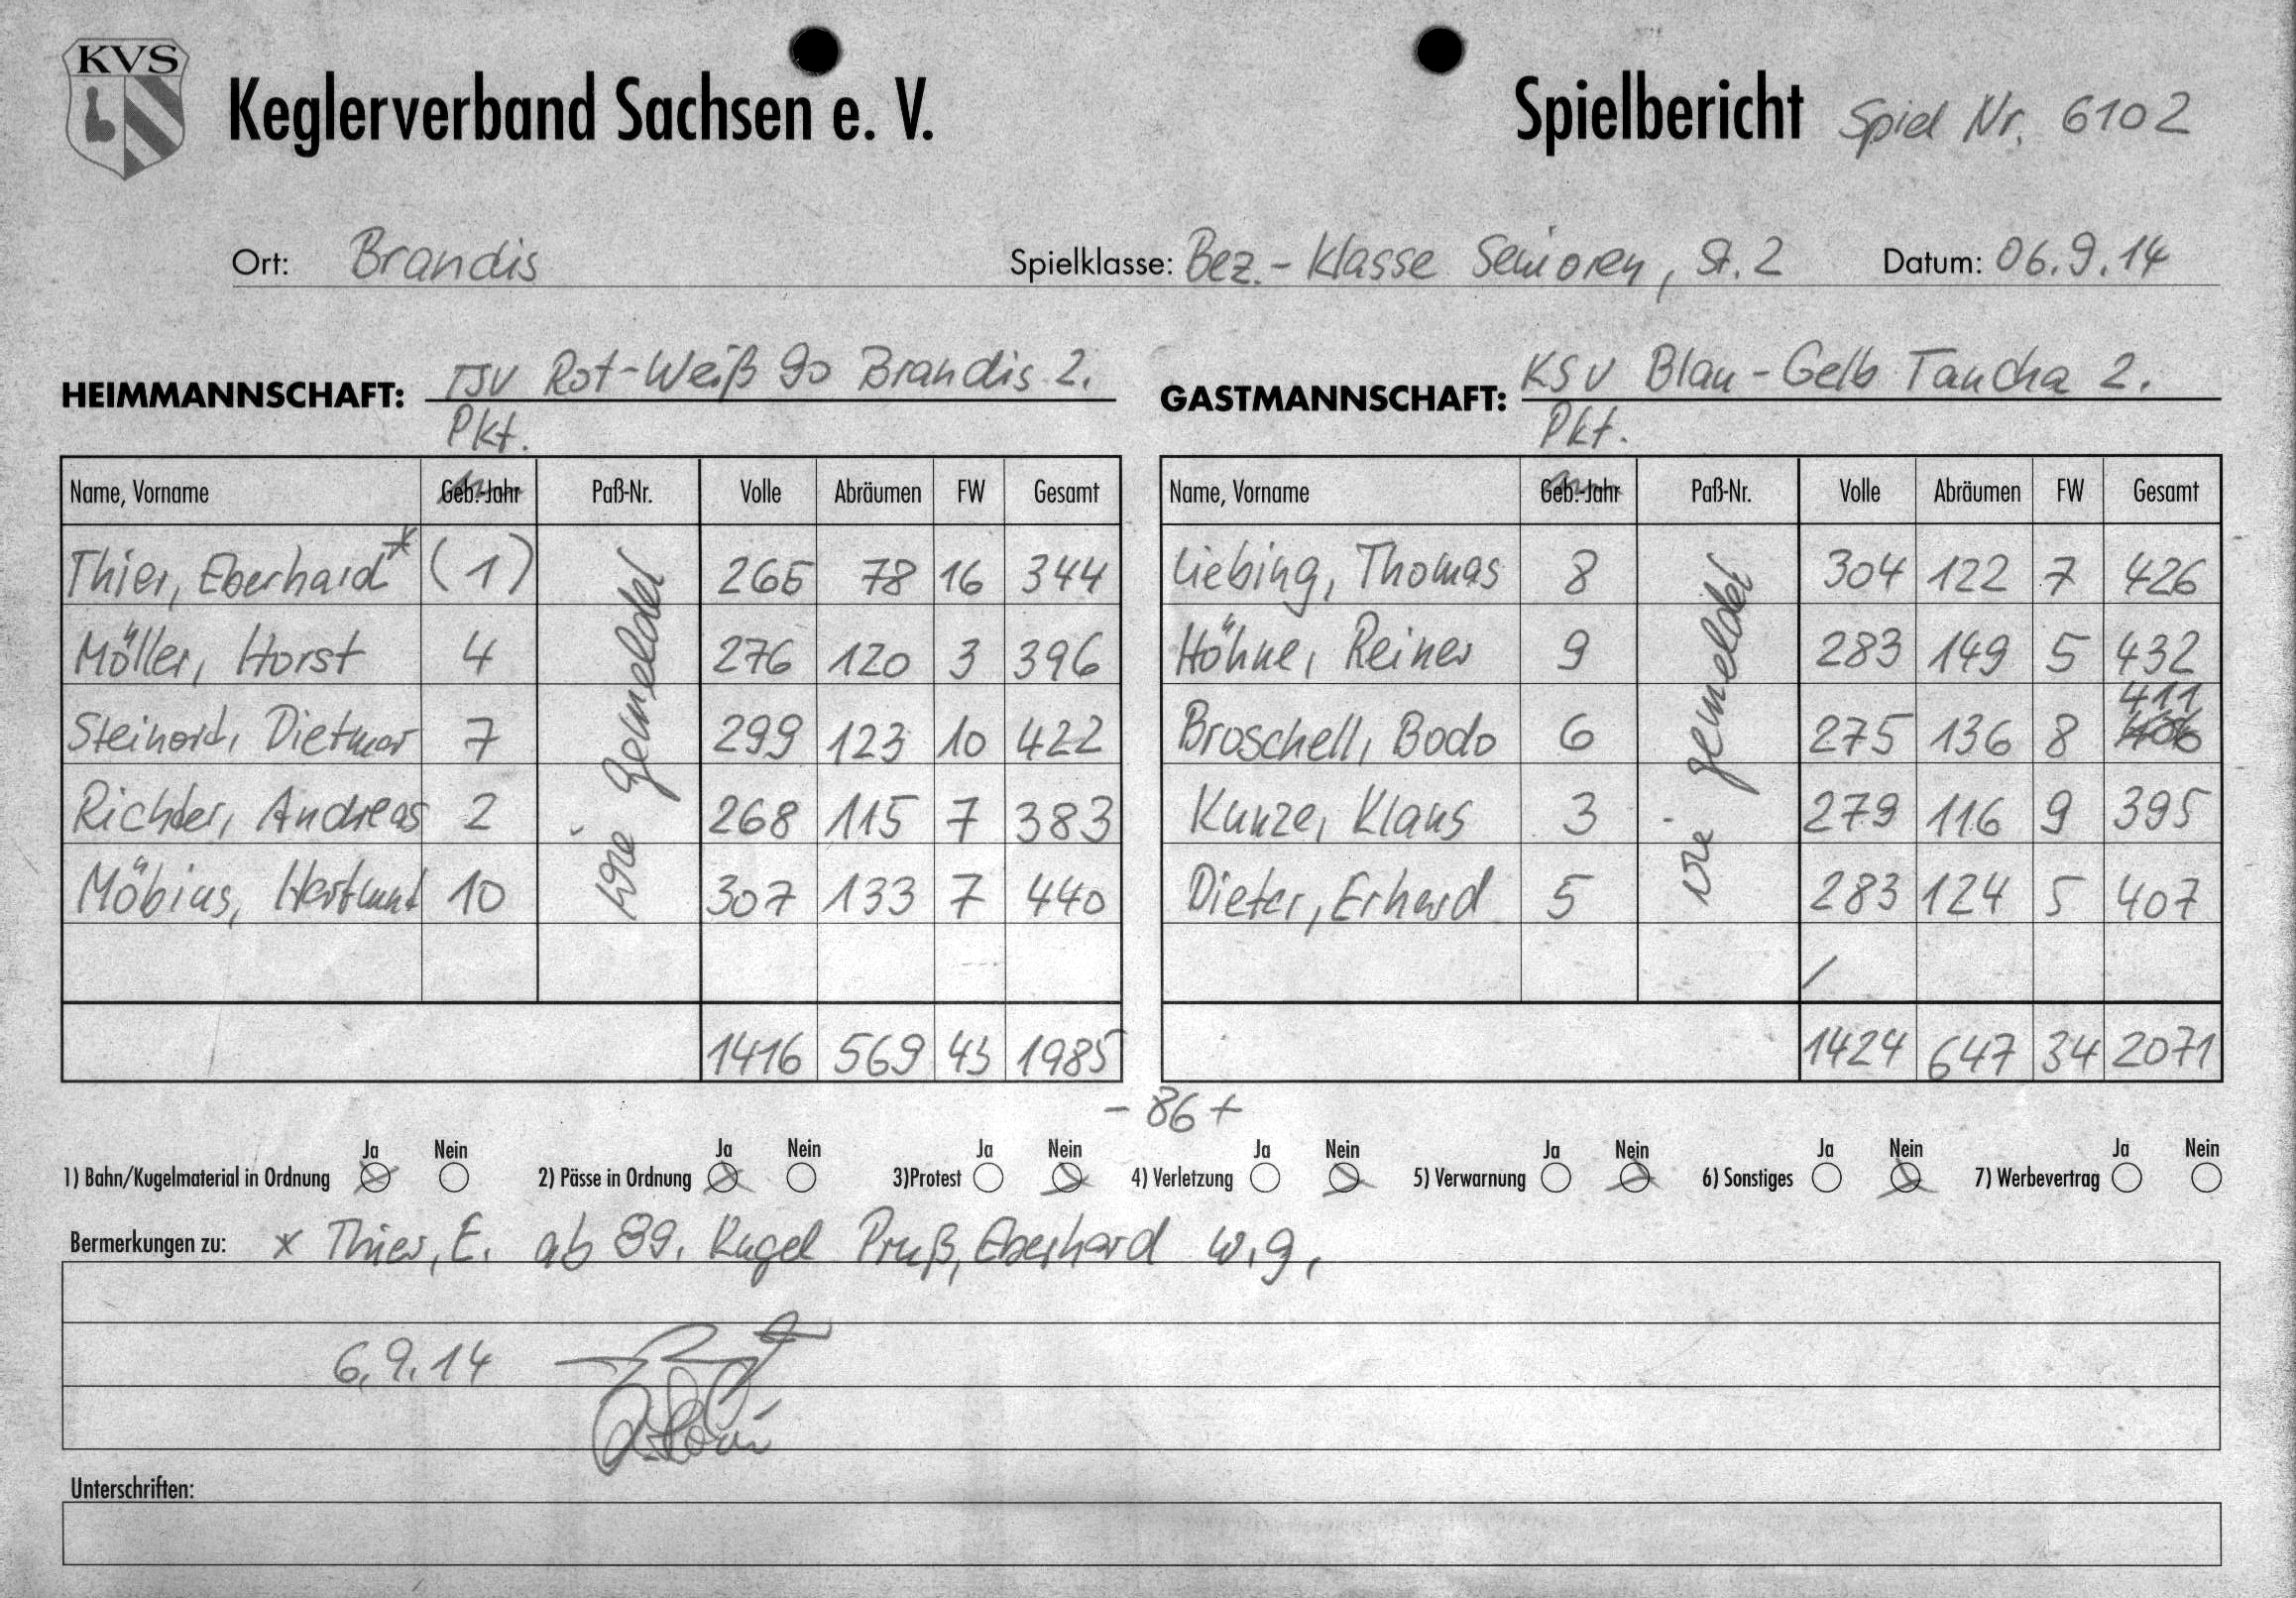 KVS
Keglerverband Sachsen e. V. Spielbericht Spiel Nr. 6102
Ort: Brandis Spielklasse: Bez.-Klasse Senioren, St. 2 Datum: 06.9.14
HEIMMANNSCHAFT: TSV Rot-Weiß 90 Brandis 2. GASTMANNSCHAFT: KSV Blau-Gelb Taucha 2.
Pkt. Pkt.
Name, Vorname Geb.-Jahr Paß-Nr. Volle Abräumen FW Gesamt Name, Vorname Geb.-Jahr Paß-Nr. Volle Abräumen FW Gesamt
Thier, Eberhard* (1) 265 78 16 344 Liebing, Thomas 8 304 122 7 426
Möller, Horst 4 276 120 3 396 Höhne, Reiner 9 283 149 5 432
Steinert, Dietmar 7 299 123 10 422 Broschell, Bodo 6 275 136 8 411
Richter, Andreas 2 268 115 7 383 Kunze, Klaus 3 279 116 9 395
Möbius, Hartmut 10 307 133 7 440 Dieter, Erhard 5 283 124 5 407
wie gemeldet wie gemeldet
1416 569 43 1985 1424 647 34 2071
- 86 +
Ja Nein Ja Nein Ja Nein Ja Nein Ja Nein Ja Nein Ja Nein
1) Bahn/Kugelmaterial in Ordnung 2) Pässe in Ordnung 3)Protest 4) Verletzung 5) Verwarnung 6) Sonstiges 7) Werbevertrag
Bermerkungen zu: * Thier, E. ab 89. Kugel Pruß, Eberhard w.g.
6.9.14
Unterschriften: